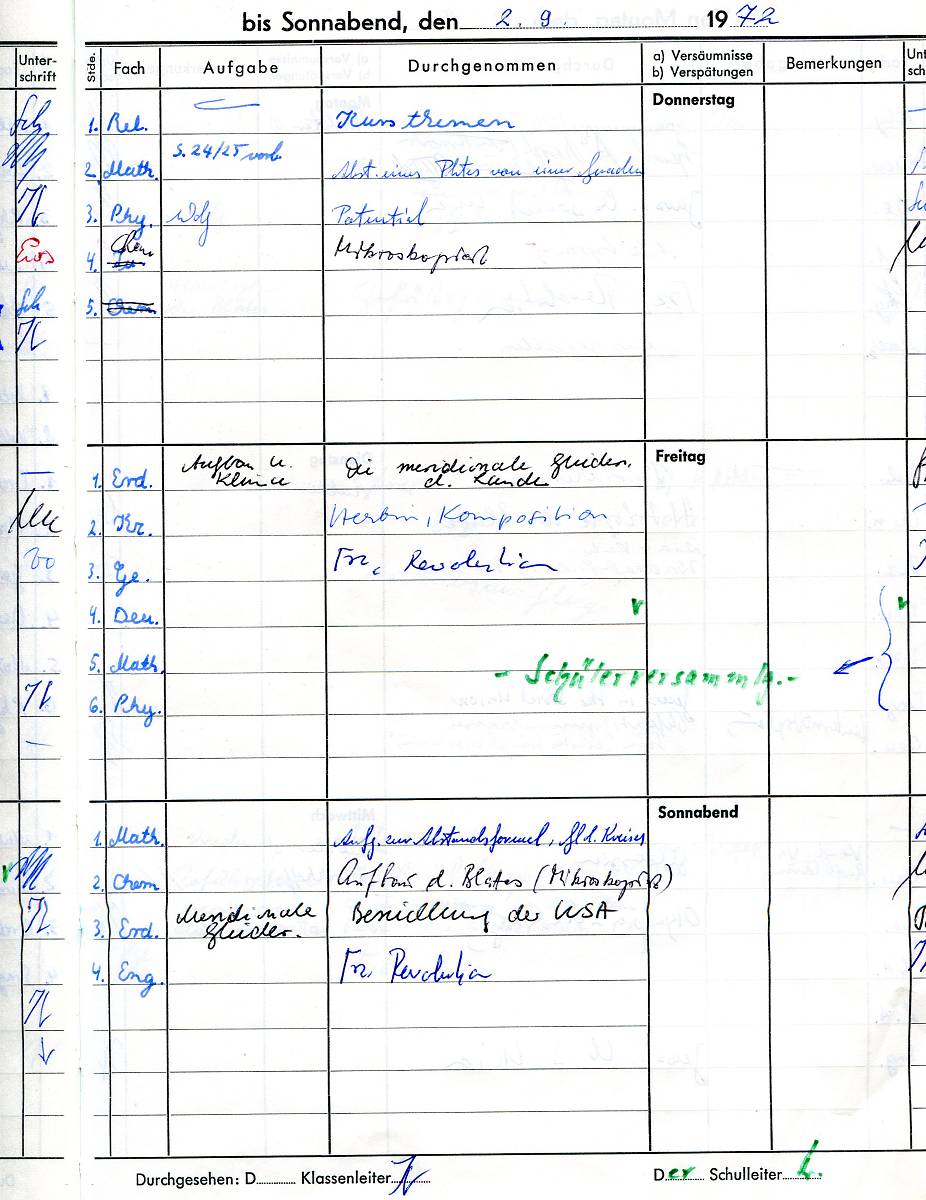 bis Sonnabend, den 2. 9. 1972
Unter-
schrift
Stde. Fach Aufgabe Durchgenommen a) Versäumnisse
b) Verspätungen Bemerkungen
Donnerstag
1. Rel. Kursthemen
2. Math. S. 24/25 vorb. Abst. eines Pktes von einer Geraden
3. Phy. Wdg Potential
4. Chem. Mikroskopiert
5. Chem
Freitag
1. Erd. Aufbau u. Klima Die meridionale Glieder. d. Landes
2. Ku. Herbin, Komposition
3. Ge. Frz. Revolution
4. Deu.
5. Math.
- Schülerversammlg. -
6. Phy.
Sonnabend
1. Math. Aufg. zur Abstandsformel, Gl d. Kreises
2. Chem Aufbau d. Blattes (Mikroskopiert)
3. Erd. Meridionale Glieder. Besiedlung der USA
4. Eng. Frz. Revolution
Durchgesehen: D Klassenleiter
Der Schulleiter